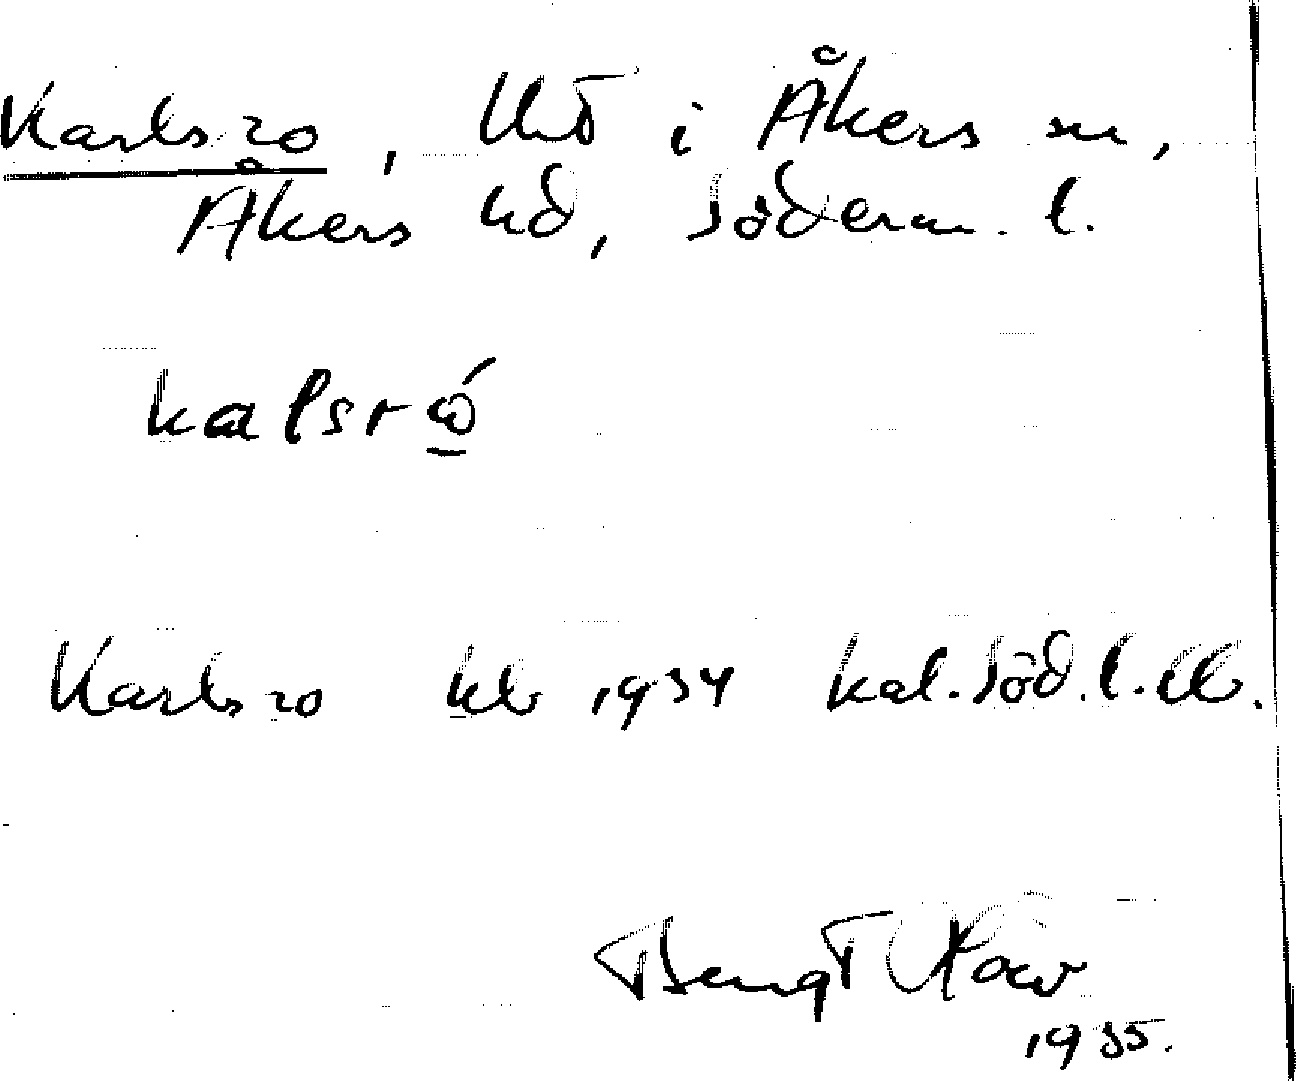 Karlsro, Hmt i Åkers sn,
Åkers hd, Söderm. l.
kalsró̱
Karlsro hb 1934 kal. Söd. l. 
Bengt
1935.